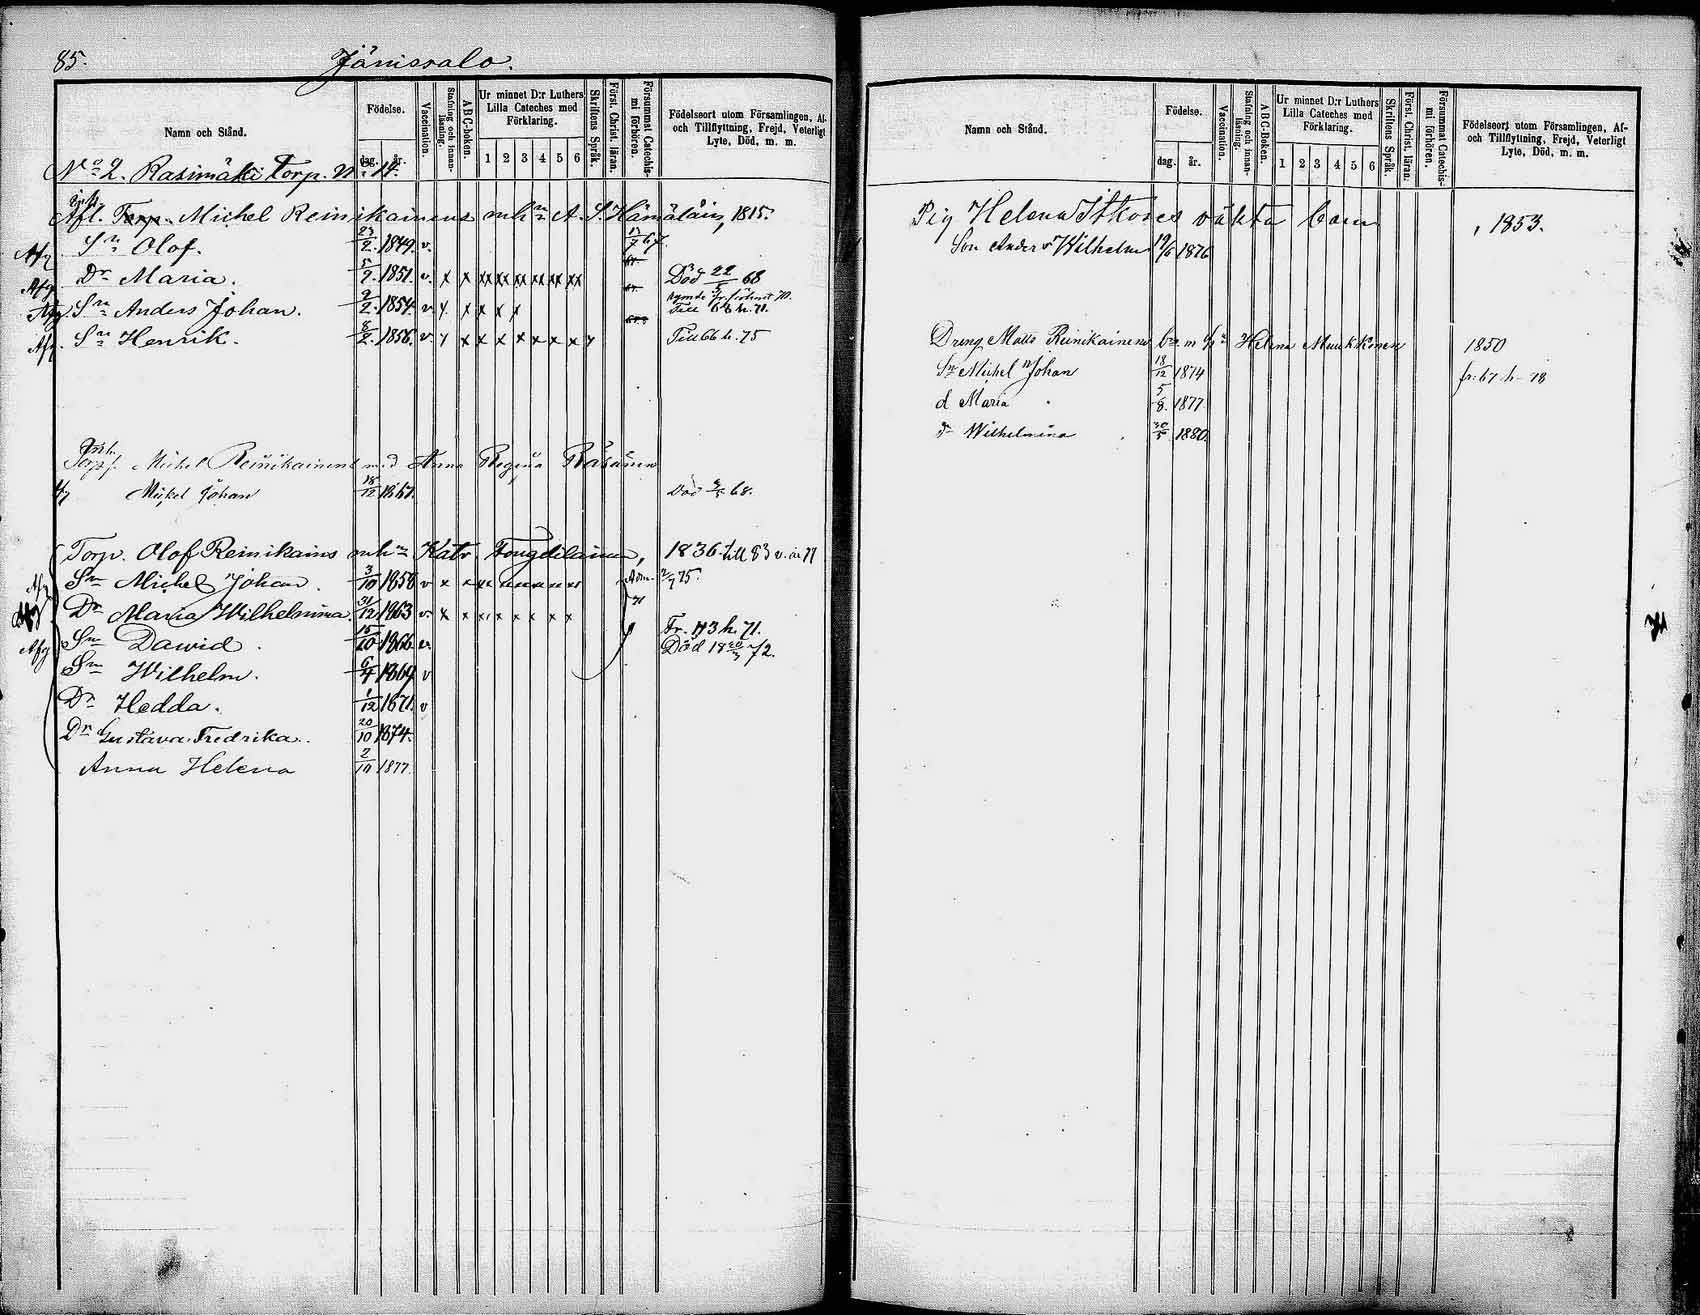 85.
Jänissalo.
Namn och Stånd.
Födelse.
dag. år.
Vaccination.
Stafning och innanläsning.
ABC-boken.
Ur minnet D:r Luthers Lilla Cateches med Förklaring.
1 2 3 4 5 6
Skriftens Språk.
Först. Christ. läran.
Försummat Catechismi förhören.
Födelseort utom Församlingen, Af- och Tillflyttning, Frejd, Veterligt Lyte, Död, m. m.
No 2. Rasimäki Torp. N 14.
Afl. Torp. Michel Reinikainens enka A. S. Hämäläin, 1815.
Afg Sn Olof. 23/2 1849. v. 67.
Afg Dr Maria. 5/9. 1851. v. x x xx xx xx xx xx xx Död 22/5 68
Afg Sn Anders Johan. 9/2. 1854. v. x x x x Till 66 h. 71.
Afg. Sn Henrik. 8/2. 1856. v. x x x x x x x x Till 66 h. 75
Michel Reinikainens m. d Anna Regina Räsänen
Mickel Johan 18/12 1867. Död 68.
Torp. Olof Reinikains enka Katr. 1836. till 83 v. år 77
Afg Sn Michel Johan. 3/10 1858 v x x xx Adm. 2/7 75.
Dr Maria Wilhelmina. 31/12 1863 v. x x x x x x x x 71
Afg Sn Dawid. 15/10 1866. v. Fr. 73 h. 71. Död 18 20/3 72.
Sn Wilhelm. 6/4 1869 v
Dr Hedda. 1/12 1871. v
Dr Gustava Fredrika. 20/10 1874.
Anna Helena 2/10 1877.
Namn och Stånd.
Födelse.
dag. år.
Vaccination.
Stafning och innanläsning.
ABC-Boken.
Ur minnet D:r Luthers Lilla Cateches med Förklaring.
1 2 3 4 5 6
Skriftens Språk.
Först. Christ. läran.
Försummat Catechismi förhören.
Födelseort utom Församlingen, Af- och Tillflyttning, Frejd, Veterligt Lyte, Död, m. m.
Pig Helena Itkones oäkta barn 1853.
Son Anders Wilhelm 19/6 1876
Dreng Matts Reinikainen Helena Muukkonen 1850
Sn Michel Johan 18/12 1874 fr. 67 h. 78
d Maria 5/8. 1877.
d Wilhelmina 30/5 1880.